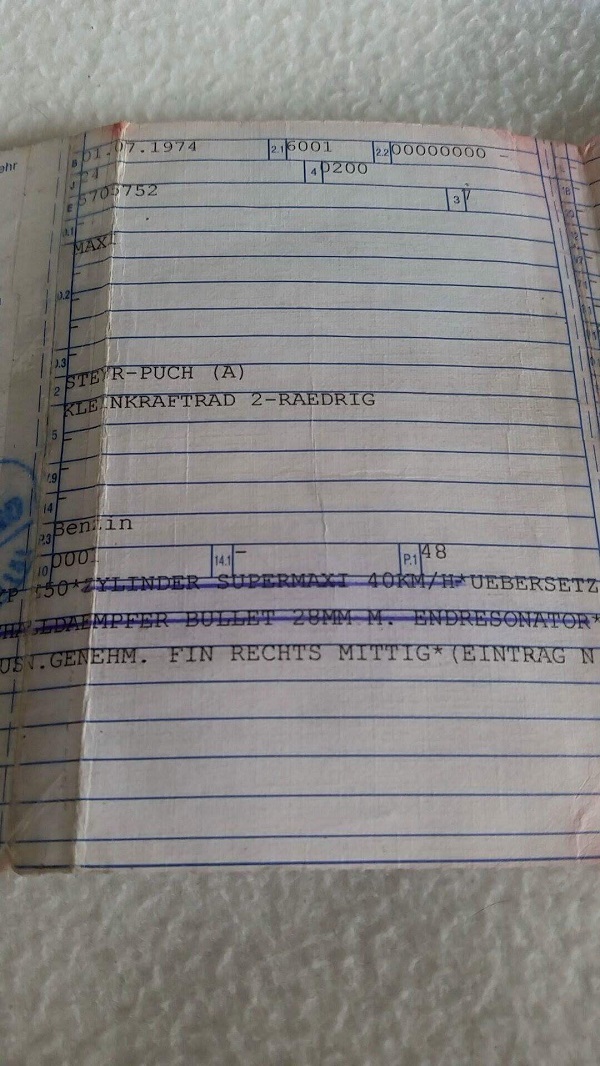 ehr
B 01.07.1974 2.1 6001 2.2 00000000 -
J 4 0200
E 5705752 3
MAXI
0.2
0.3
2 STEYR-PUCH (A)
KLEINKRAFTRAD 2-RAEDRIG
5
V.9
14
P.3 Benzin
10 0001 14.1 - P.1 48
50*ZYLINDER SUPERMAXI 40KM/H*UEBERSETZ
LDAEMPFER BULLET 28MM M. ENDRESONATOR*
.GENEHM. FIN RECHTS MITTIG*(EINTRAG N